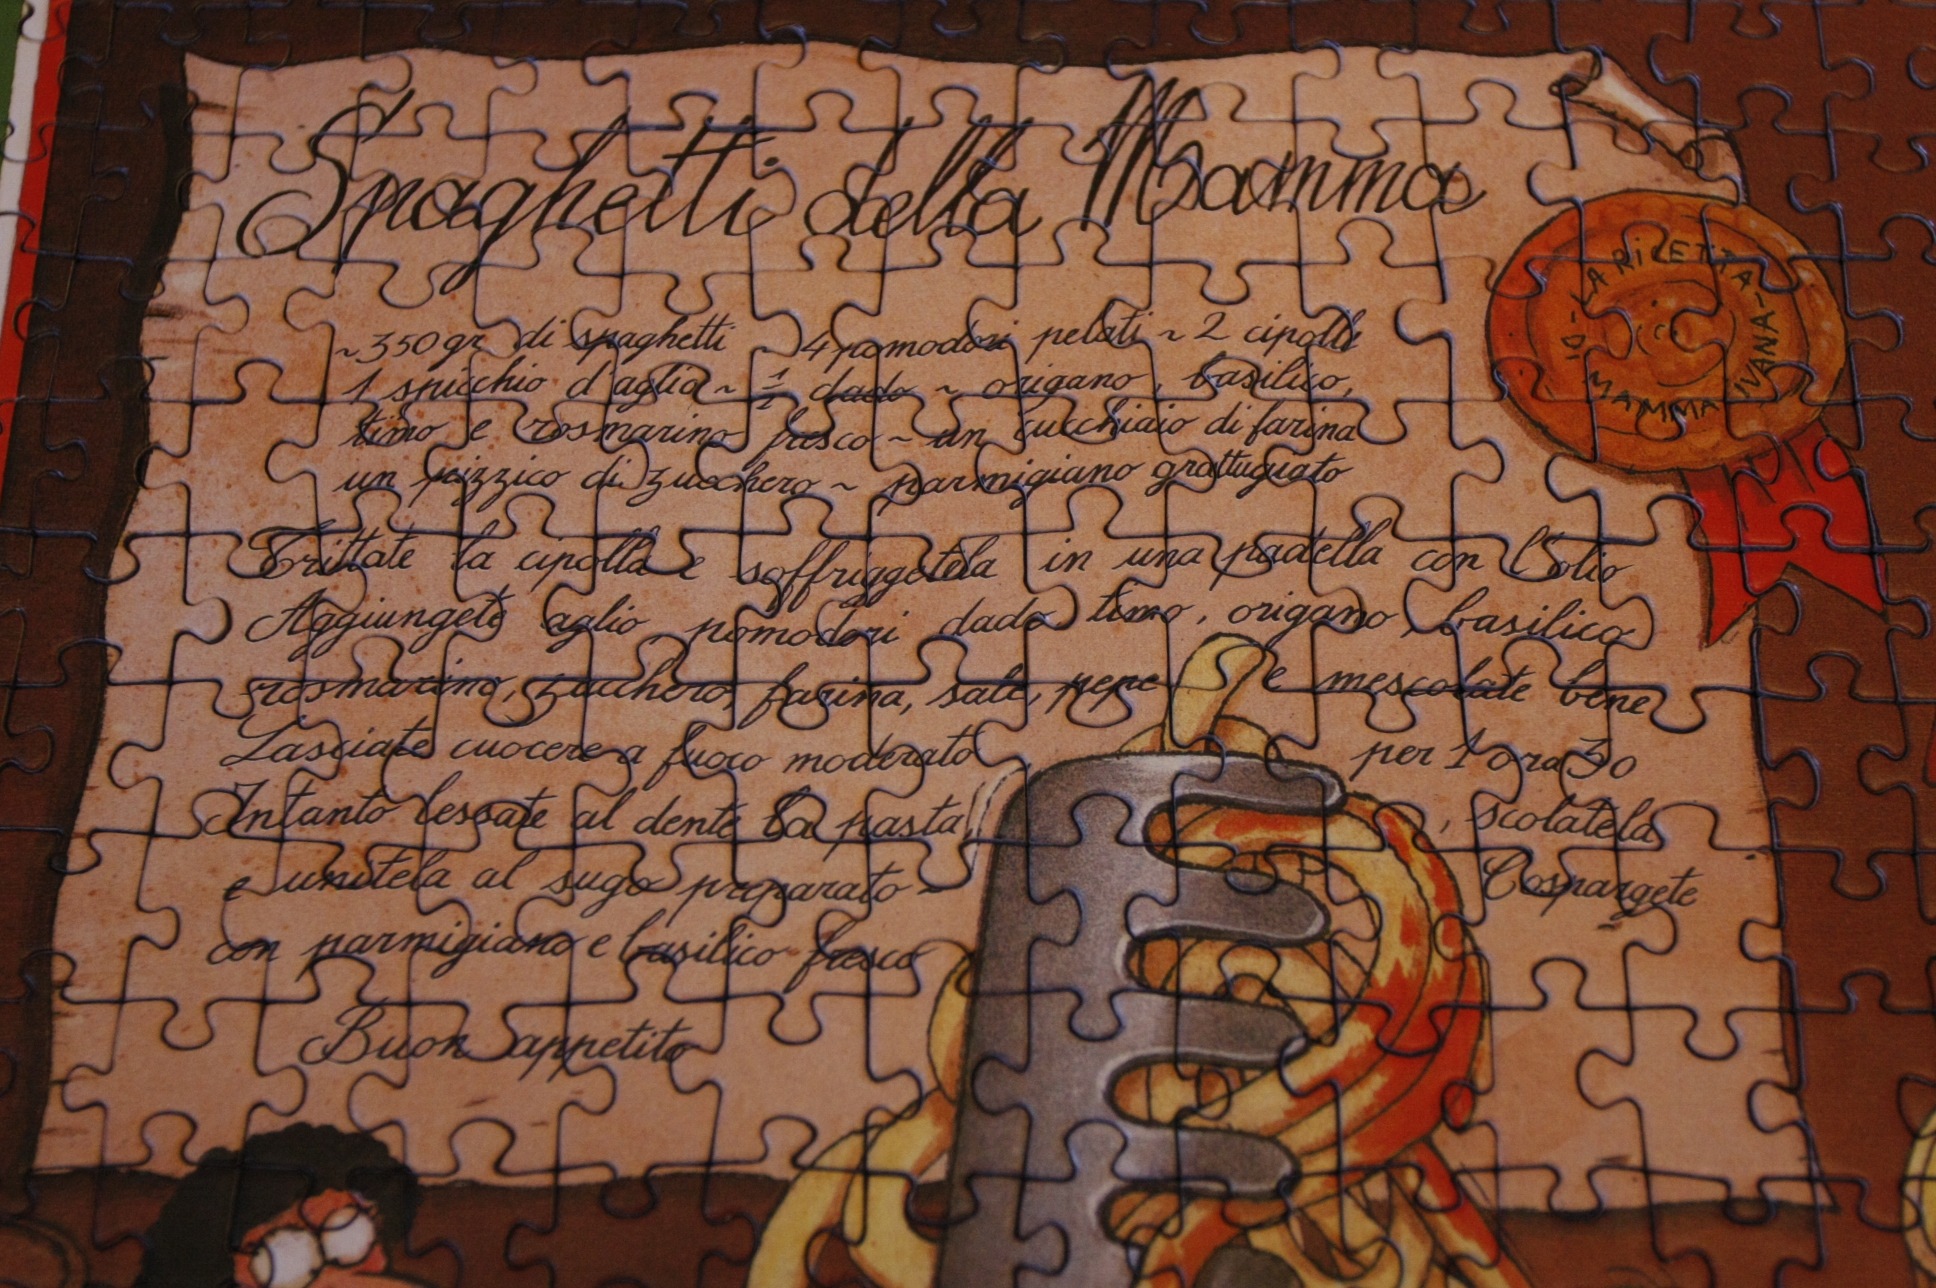 Spaghetti della Mamma
~ 350 gr di spaghetti ~ 4 pomodori pelati ~ 2 cipolle
1 spicchio d'aglio ~ 1/2 dado ~ origano, basilico,
timo e rosmarino fresco ~ un cucchiaio di farina
un pizzico di zucchero ~ parmigiano grattuguato
LA RICETTA - DI MAMMA IVANA -
Trittate la cipolla e soffriggetela in una padella con l'olio
Aggiungete aglio pomodori dado timo, origano, basilico
rosmarino, zucchero, farina, sale, pepe e mescolate bene
Lasciate cuocere a fuoco moderato per 1 ora 30
Intanto lessate al dente la pasta, scolatela
e unitela al sugo preparato - Cospargete
con parmigiano e basilico fresco
Buon appetito